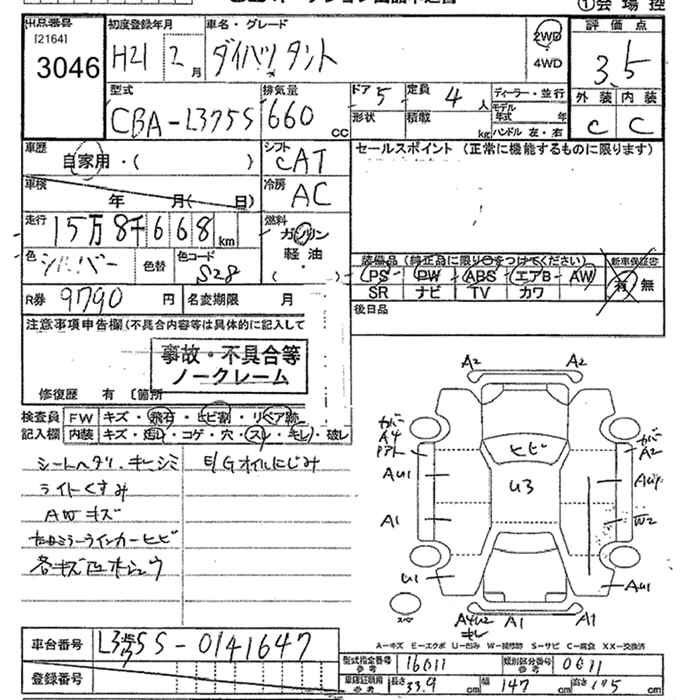 出品番号 初度登録年月 車名・グレード ①会場控
[2164] 評価点
3046 H21 2月 ダイハツ タント 2WD 3.5
4WD
型式 排気量 ドア 5 定員 4人 ディーラー・並行 外装 内装
CBA-L375S 660cc 形状 積載 kg モデル年式 年 C C
ハンドル 左・右
車歴 自家用・( ) シフト CAT セールスポイント (正常に機能するものに限ります)
車検 年 月( 日) 冷房 AC
走行 15万8千668km 燃料 ガソリン
色 シルバー 色替 色コード S28 軽油 装備品 (純正品に限り○をつけてください) 新車保証書
( PS PW ABS エアB AW 有 無
R券 9790円 名変期限 月 SR ナビ TV カワ
注意事項申告欄(不具合内容等は具体的に記入して 後日品
事故・不具合等
ノークレーム
修復歴 有 〔箇所
検査員 FW キズ・飛石・ヒビ割・リペア跡
記入欄 内装 キズ・・コゲ・穴・スレ・キレ・破レ
シートヘタリ・キシミ E/Gオイルにじみ
ライトくすみ
AWキズ
ミラーウインカーヒビ
各キズ
A2 A2
カバー A4 ヒビ カバー A2
AU1 U3
A1 W2
U1 AU1
スペア A4U2 キレ A1 A1
A-キズ E-エクボ U-凹み W-補修跡 S-サビ C-腐食 XX-交換済
車台番号 L375S-0141647
登録番号 型式指定番号 参考 16011 類別区分番号 参考 0011
車庫証明用 参考 長さ 339cm 幅 147cm 高さ 175cm